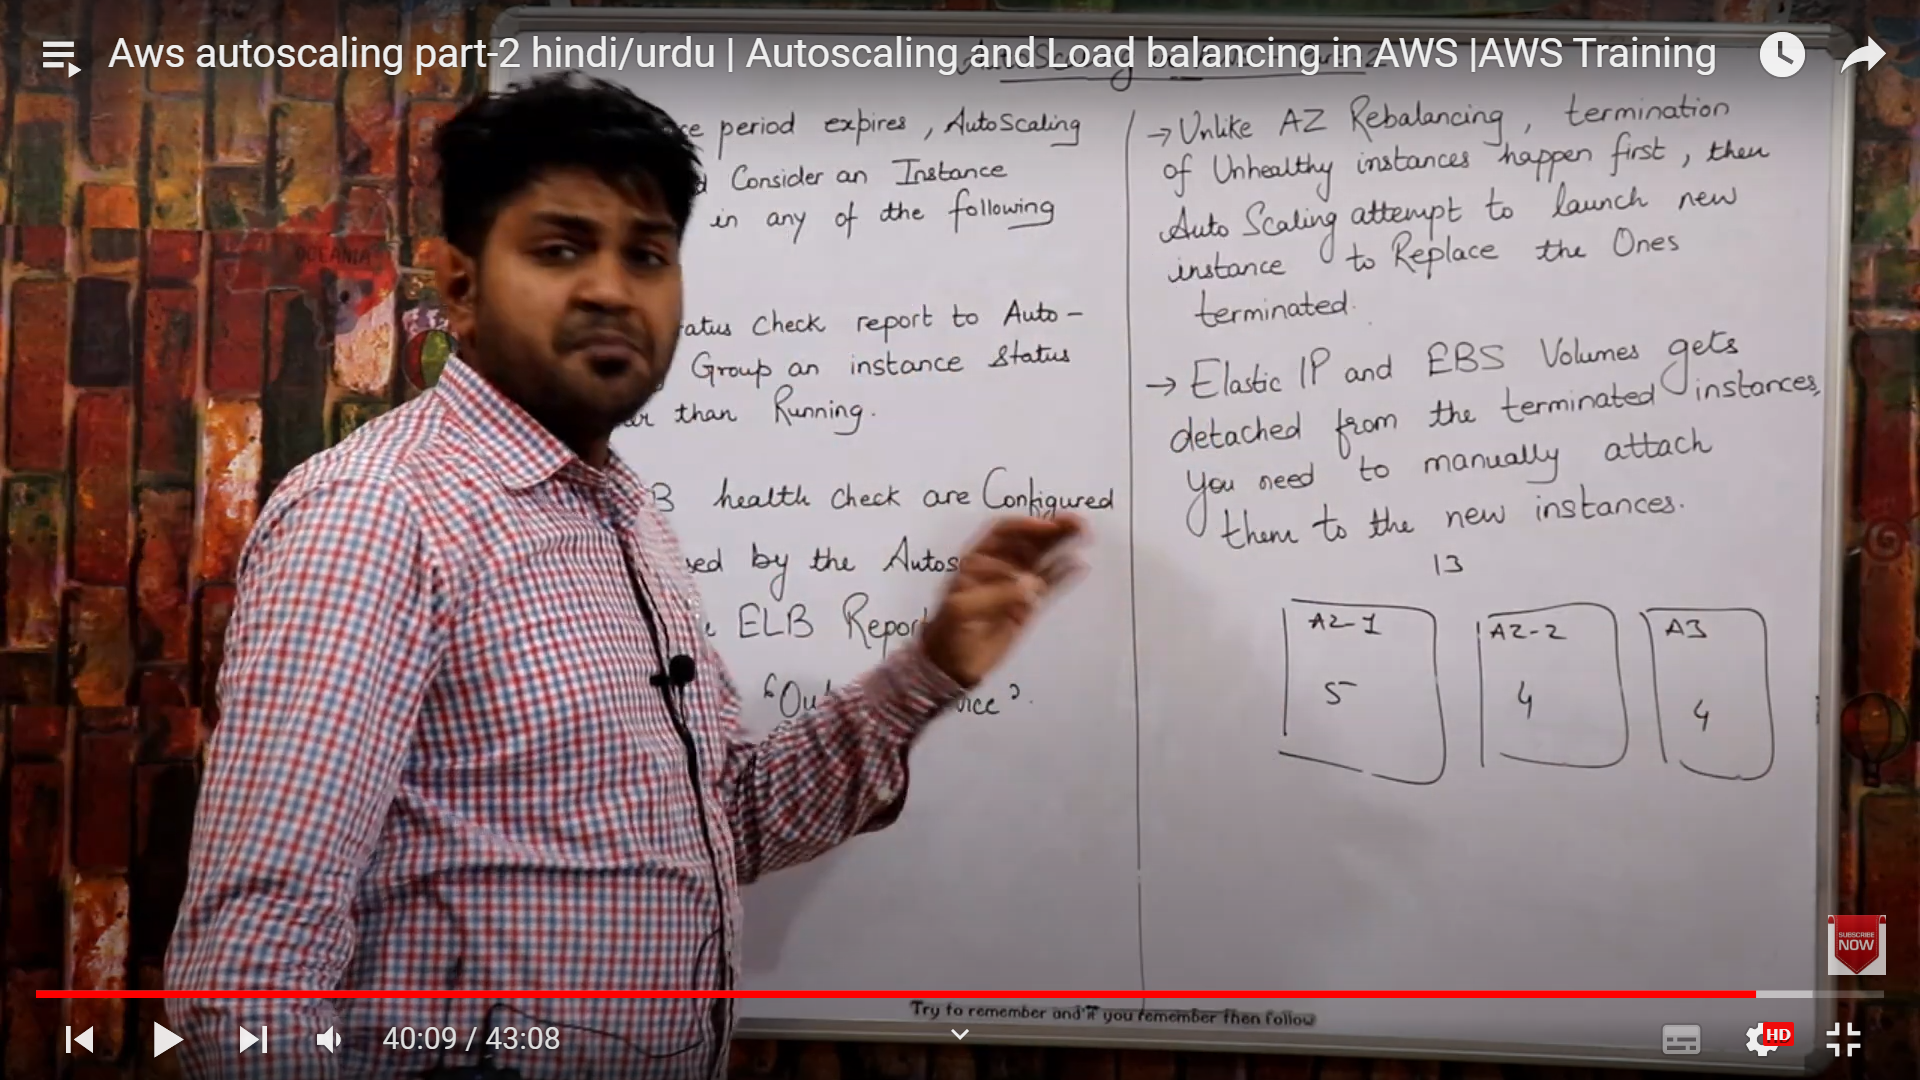 Aws autoscaling part-2 hindi/urdu | Autoscaling and Load balancing in AWS |AWS Training
period expires, AutoScaling
Consider an Instance
in any of the following
Status Check report to Auto-
Group an instance Status
than Running.
health check are Configured
by the Autos
ELB Report
→ Unlike AZ Rebalancing, termination
of Unhealthy instances happen first, then
Auto Scaling attempt to launch new
instance to Replace the Ones
terminated.
→ Elastic IP and EBS Volumes gets
detached from the terminated instances,
You need to manually attach
them to the new instances.
13
AZ-1
5
AZ-2
4
A3
4
OCEANIA
SUBSCRIBE
NOW
Try to remember and if you remember then follow
40:09 / 43:08
HD